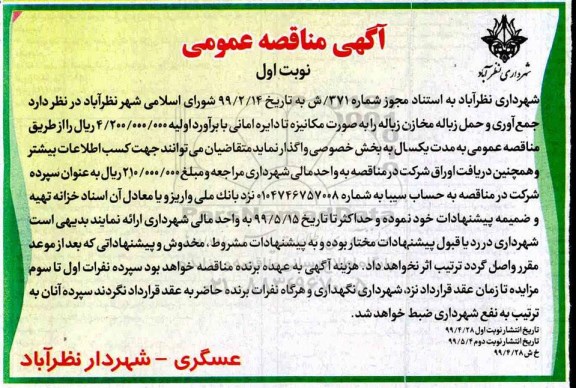 آگهی مناقصه عمومی
نوبت اول
شهرداری نظرآباد
شهرداری نظرآباد به استناد مجوز شماره ۳۷۱/ش به تاریخ ۹۹/۲/۱۴ شورای اسلامی شهر نظرآباد در نظر دارد
جمع‌آوری و حمل زباله مخازن زباله را به صورت مکانیزه تا دایره امانی با برآورد اولیه ۴/۲۰۰/۰۰۰/۰۰۰ ریال را از طریق
مناقصه عمومی به مدت یکسال به بخش خصوصی واگذار نماید متقاضیان می توانند جهت کسب اطلاعات بیشتر
و همچنین دریافت اوراق شرکت در مناقصه به واحد مالی شهرداری مراجعه و مبلغ ۲۱۰/۰۰۰/۰۰۰ ریال به عنوان سپرده
شرکت در مناقصه به حساب سیبا به شماره ۰۱۰۴۷۴۶۷۵۷۰۰۸ نزد بانک ملی واریز و یا معادل آن اسناد خزانه تهیه
و ضمیمه پیشنهادات خود نموده و حداکثر تا تاریخ ۹۹/۵/۱۵ به واحد مالی شهرداری ارائه نمایند بدیهی است
شهرداری در رد یا قبول پیشنهادات مختار بوده و به پیشنهادات مشروط، مخدوش و پیشنهاداتی که بعد از موعد
مقرر واصل گردد ترتیب اثر نخواهد داد. هزینه آگهی به عهده برنده مناقصه خواهد بود سپرده نفرات اول تا سوم
مزایده تا زمان عقد قرارداد نزد شهرداری نگهداری و هرگاه نفرات برنده حاضر به عقد قرارداد نگردند سپرده آنان به
ترتیب به نفع شهرداری ضبط خواهد شد.
تاریخ انتشار نوبت اول ۹۹/۴/۲۸
تاریخ انتشار نوبت دوم ۹۹/۵/۴
خ ش ۹۹/۴/۲۸
عسگری - شهردار نظرآباد